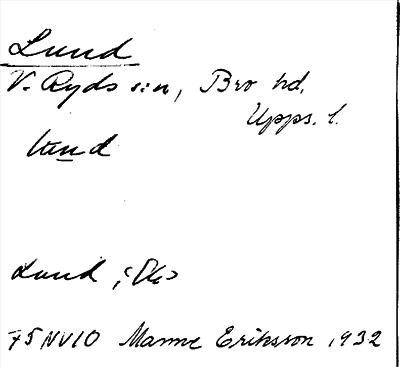 Lund
V. Ryds sn, Bro hd,
Upps. l.
Lund
75 NV10 Manne Eriksson 1932